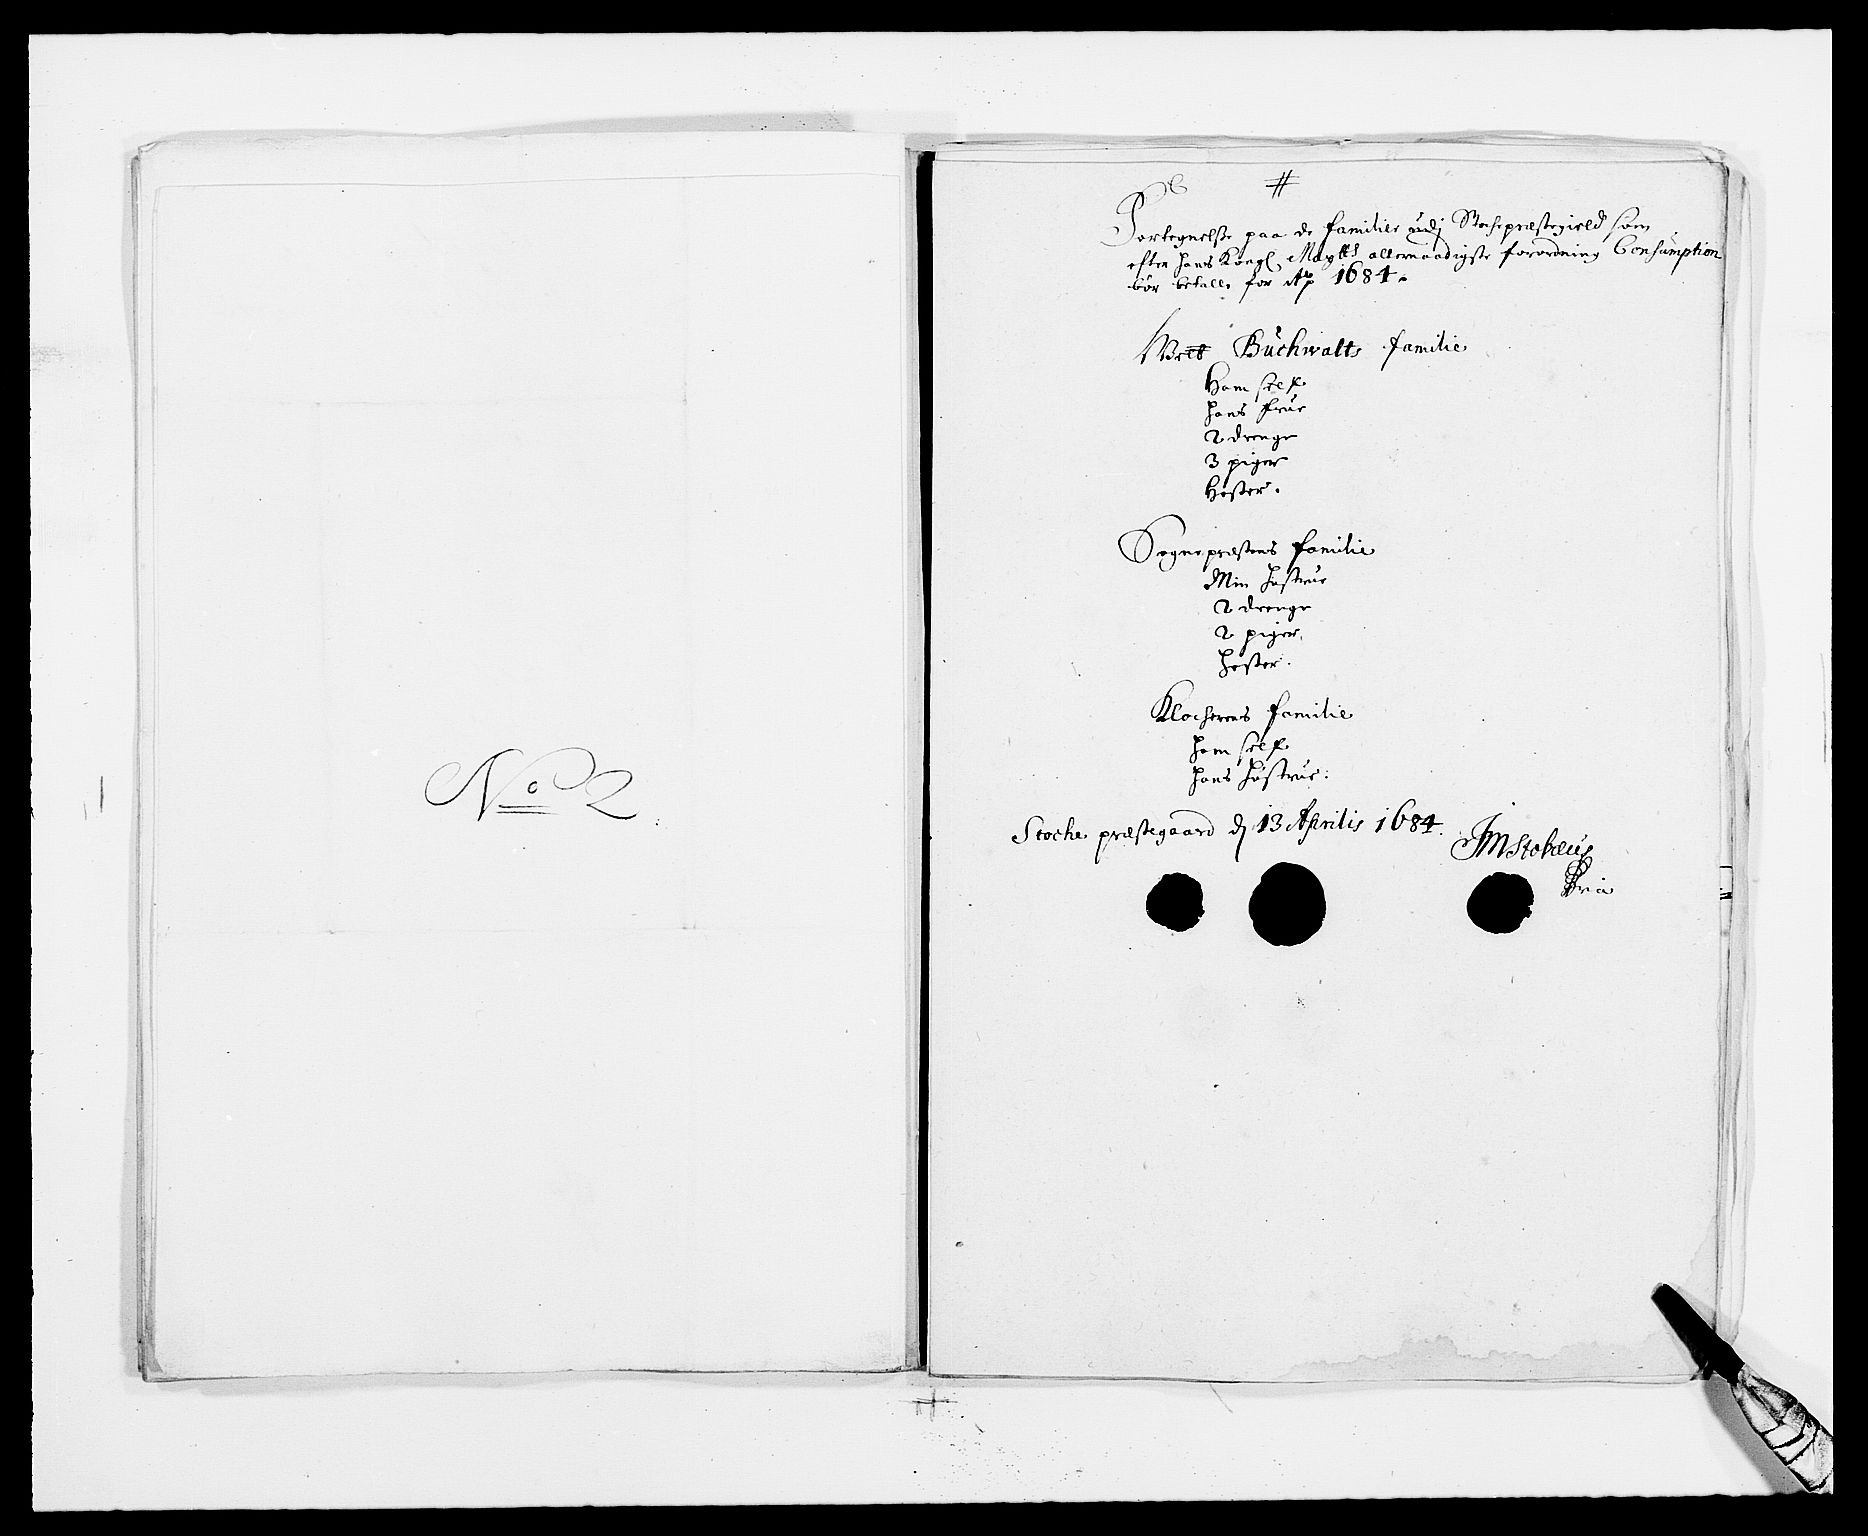 No 2
#
Fortegnelse paa de familier udj Stockepræstegield som
efter Hans Kongl. Maytts allernaadigste forordning Consumption
bör betalle for Ap 1684.
Buchwalts familie
Ham self
Hans frue
2 drenge
3 piger
Hester.
Sognepræstens familie
Min Hustrue
2 drenge
2 piger
Hester.
Klockerens familie
Ham self
Hans Hustrue:
Stocke præstegaard dj 13 Aprilis 1684.
JMStokæus